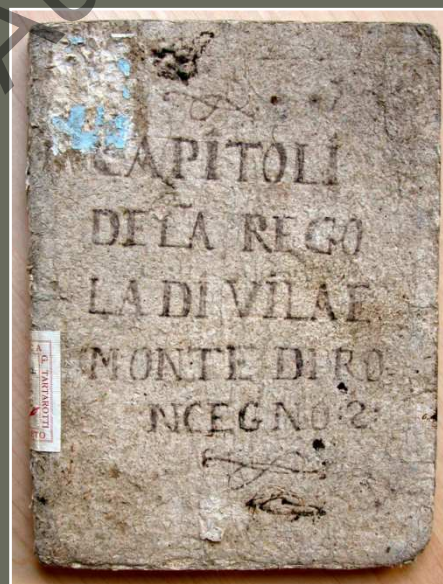 CAPITOLI
DE LA REGO
LA DI VILA E
MONTE DI RO
NCEGNI 2
G. TARTAROTTI